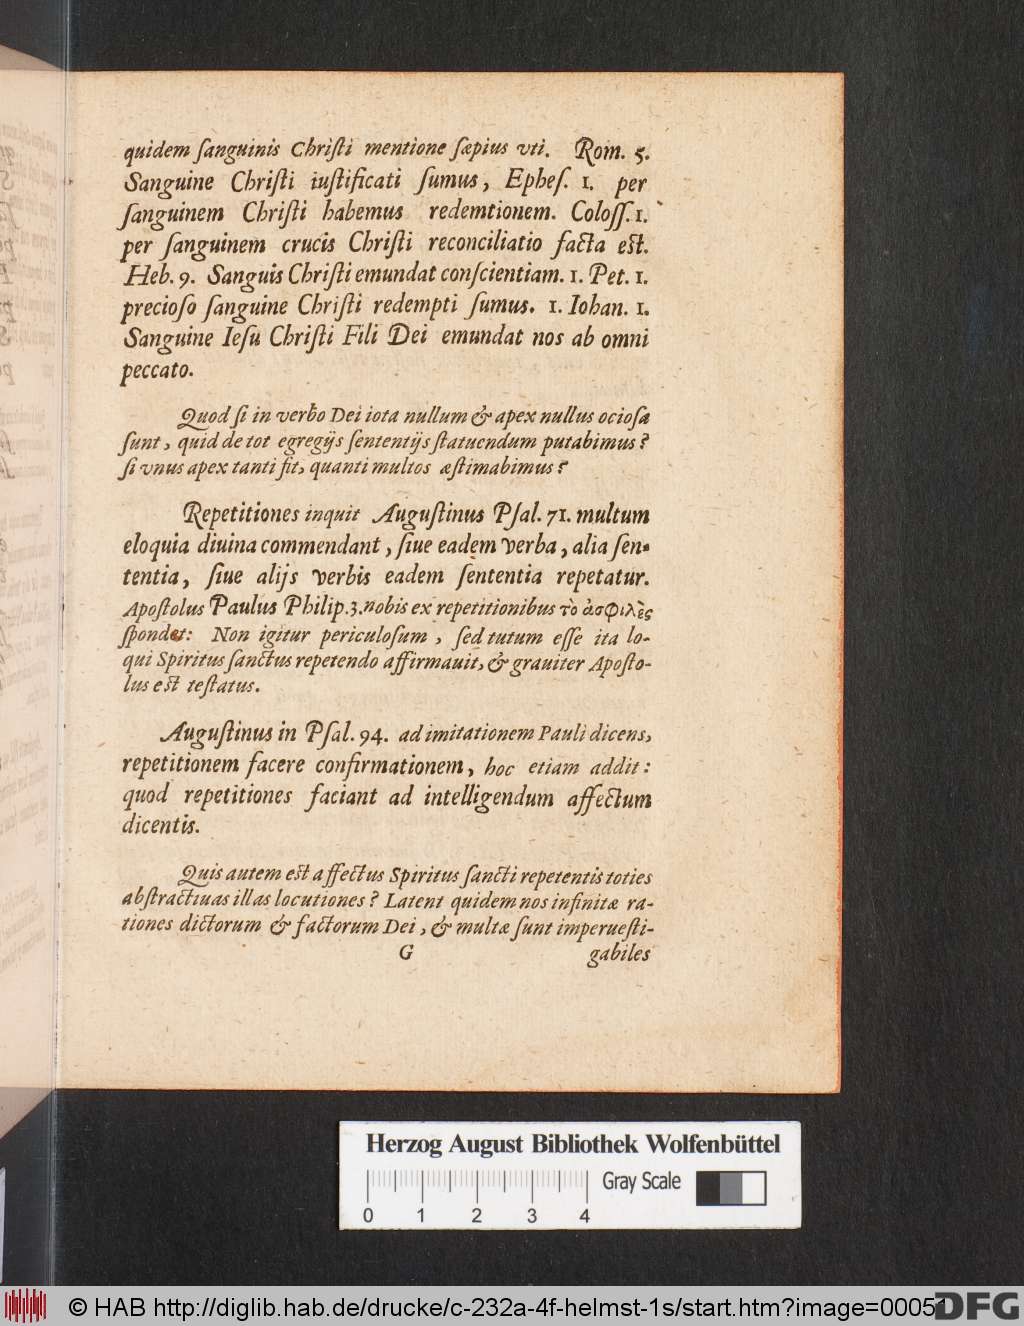 quidem ſanguinis Chriſti mentione ſæpius vti. Rom. 5.
Sanguine Chriſti iuſtificati ſumus, Epheſ. 1. per
ſanguinem Chriſti habemus redemtionem. Coloſſ. 1.
per ſanguinem crucis Chriſti reconciliatio facta eſt.
Heb. 9. Sanguis Chriſti emundat conſcientiam. 1. Pet. 1.
precioſo ſanguine Chriſti redempti ſumus. 1. Iohan. 1.
Sanguine Ieſu Chriſti Fili Dei emundat nos ab omni
peccato.
Quod ſi in verbo Dei iota nullum & apex nullus ocioſa
ſunt, quid de tot egregijs ſententijs ſtatuendum putabimus?
ſi vnus apex tanti ſit, quanti multos æſtimabimus?
Repetitiones inquit Auguſtinus Pſal. 71. multum
eloquia diuina commendant, ſiue eadem verba, alia ſen-
tentia, ſiue alijs verbis eadem ſententia repetatur.
Apoſtolus Paulus Philip. 3. nobis ex repetitionibus τὸ ἀσφιλὲς
ſpondet: Non igitur periculoſum, ſed tutum eſſe ita lo-
qui Spiritus ſanctus repetendo affirmauit, & grauiter Apoſto-
lus eſt teſtatus.
Auguſtinus in Pſal. 94. ad imitationem Pauli dicens,
repetitionem facere confirmationem, hoc etiam addit:
quod repetitiones faciant ad intelligendum affectum
dicentis.
Quis autem eſt affectus Spiritus ſancti repetentis toties
abſtractiuas illas locutiones? Latent quidem nos infinitæ ra-
tiones dictorum & factorum Dei, & multæ ſunt imperueſti-
G gabiles
Herzog August Bibliothek Wolfenbüttel
Gray Scale
0 1 2 3 4
© HAB http://diglib.hab.de/drucke/c-232a-4f-helmst-1s/start.htm?image=00051
DFG